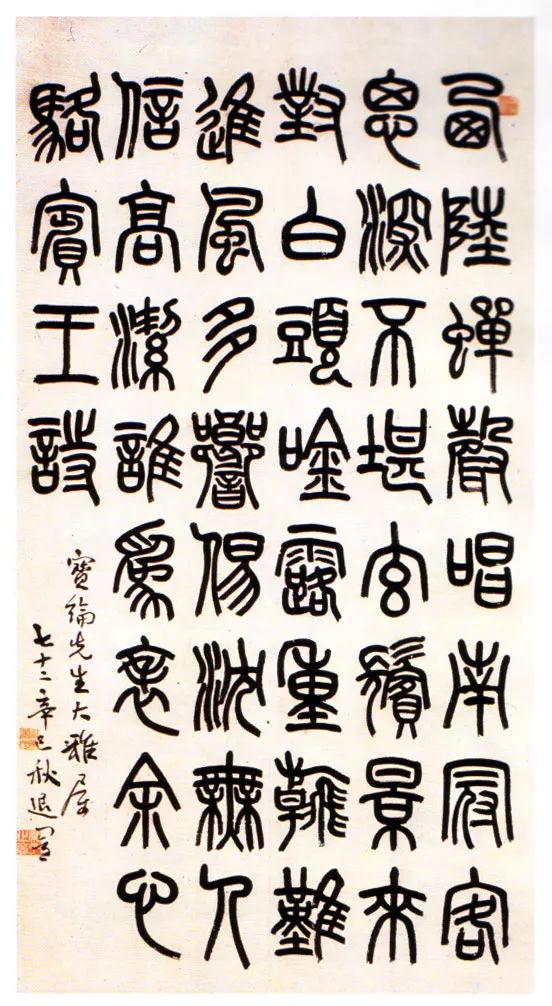 西陸蟬聲唱南冠客
思深不堪玄鬢景來
對白頭唫露重難
進風多響易沈無人
信高潔誰為表余心
駱賓王詩
寶綸先生大雅屬
七十二辛巳秋退